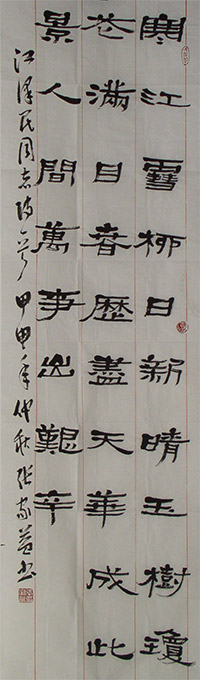 寒江雪柳日新晴玉樹瓊
花滿目春歷盡天華成此
景人間萬事出艱辛
江泽民同志诗一首 甲申年仲秋 张家益书